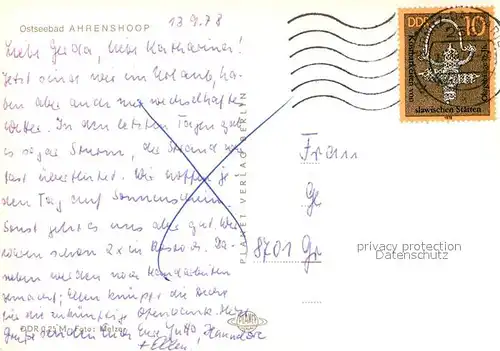 Ostseebad AHRENSHOOP
13.9.78
Liebe Gerda, liebe Katharina!
Jetzt sind wir im Urlaub, ha-
ben aber auch nur wechselhaftes
Wetter. In den letzten Tagen gab
es sogar Sturm, der Strand war
fast überflutet. Wir hoffen je
den Tag auf Sonnenschein.
Sonst geht es uns aber gut. Wir
waren schon 2x in Rostock. Da-
neben werden noch Handarbeiten
gemacht; Ellen knüpft die Decke
für die zukünftige
Grüße senden Euch Jutta, Hannelore
+ Ellen
DDR 0,25 M Foto:
PLANET VERLAG BERLIN
PLANET
DDR
10
Kostbarkeiten von
slawischen Stätten
1978
Frau
Ge
8701 Gr
privacy protection
Datenschutz